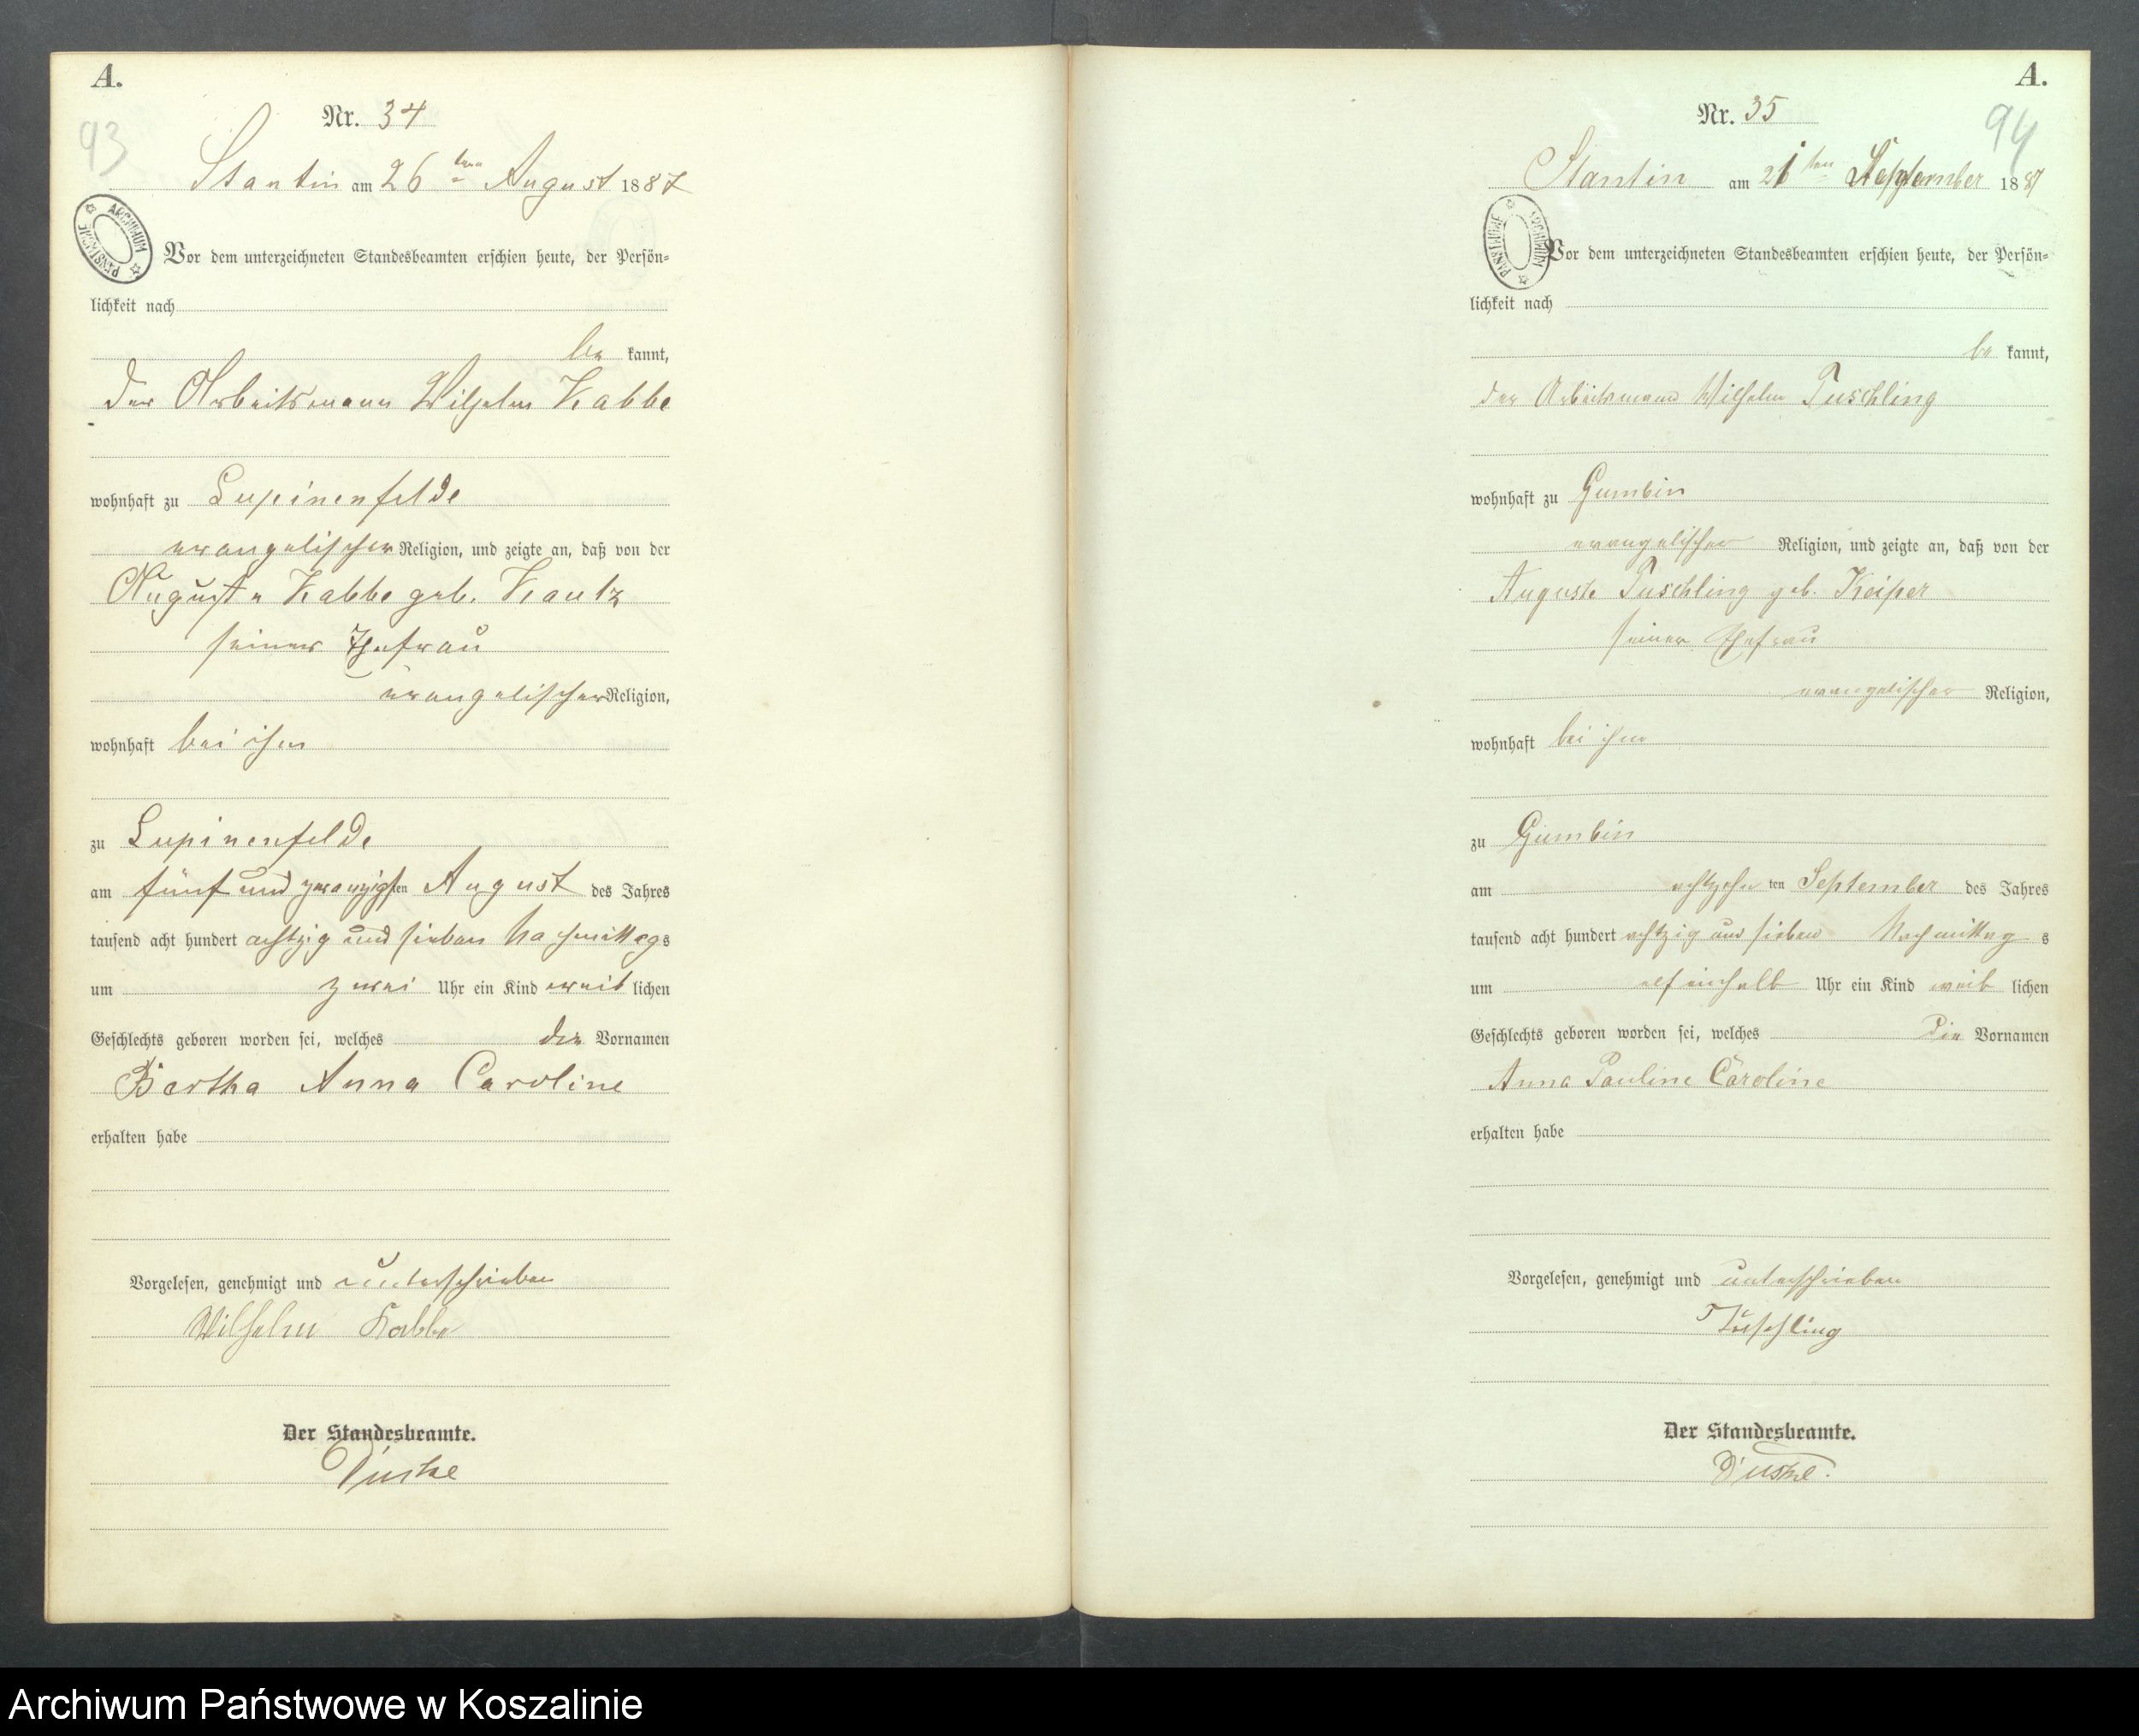 A.
Nr. 34
93
Stantin am 26ten August 1887
ARCHIWUM PAŃSTWOWE
Vor dem unterzeichneten Standesbeamten erschien heute, der Persön-
lichkeit nach
be kannt,
der Arbeitsmann Wilhelm Kabbe
wohnhaft zu Lupinenfelde
evangelischer Religion, und zeigte an, daß von der
Auguste Kabbe geb. Kautz
seiner Ehefrau
evangelischer Religion,
wohnhaft bei ihm
zu Lupinenfelde
am fünf und zwanzigsten August des Jahres
tausend acht hundert achtzig und sieben Nachmittags
um zwei Uhr ein Kind weiblichen
Geschlechts geboren worden sei, welches die Vornamen
Bertha Anna Caroline
erhalten habe
Vorgelesen, genehmigt und unterschrieben
Wilhelm Kabbe
Der Standesbeamte.
A.
Nr. 35
94
Stantin am 21ten September 1887
ARCHIWUM PAŃSTWOWE
Vor dem unterzeichneten Standesbeamten erschien heute, der Persön-
lichkeit nach
be kannt,
der Arbeitsmann Wilhelm Tuschling
wohnhaft zu Gumbin
evangelischer Religion, und zeigte an, daß von der
Auguste Tuschling geb. Keiper
seiner Ehefrau
evangelischer Religion,
wohnhaft bei ihm
zu Gumbin
am achtzehnten September des Jahres
tausend acht hundert achtzig und sieben Nachmittags
um elfeinhalb Uhr ein Kind weiblichen
Geschlechts geboren worden sei, welches die Vornamen
Anna Pauline Caroline
erhalten habe
Vorgelesen, genehmigt und unterschrieben
Tuschling
Der Standesbeamte.
Archiwum Państwowe w Koszalinie